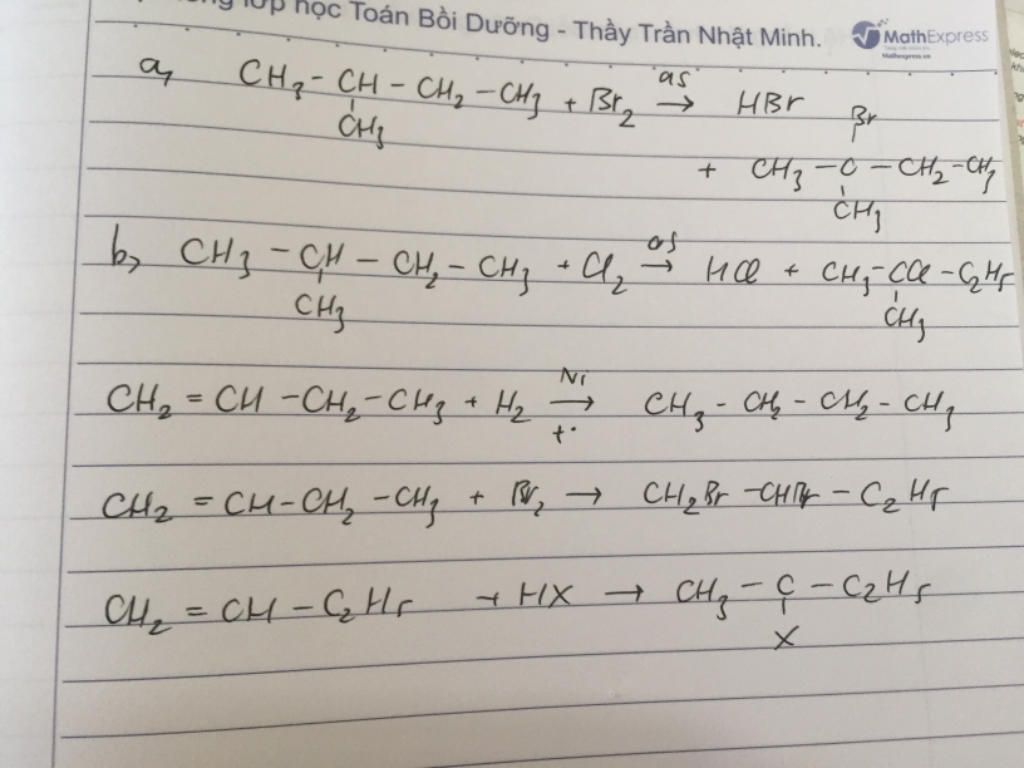 lớp học Toán Bồi Dưỡng - Thầy Trần Nhật Minh.
MathExpress
Mathexpress.vn
a, CH3 - CH - CH2 - CH3 + Br2 as → HBr
CH3
Br
+ CH3 - C - CH2 - CH3
CH3
b, CH3 - CH - CH2 - CH3 + Cl2 as → HCl + CH3 - CCl - C2H5
CH3
CH3
CH2 = CH - CH2 - CH3 + H2 Ni → t° CH3 - CH2 - CH2 - CH3
CH2 = CH - CH2 - CH3 + Br2 → CH2Br - CHBr - C2H5
CH2 = CH - C2H5 + HX → CH3 - C - C2H5
X